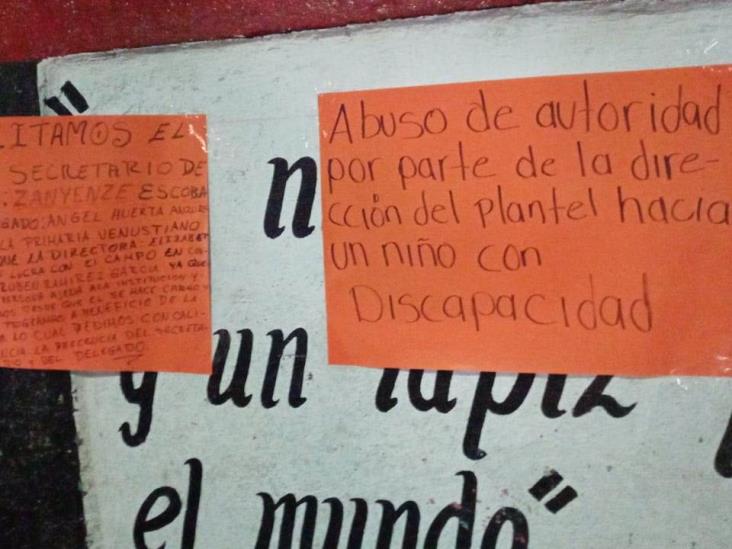 LITAMOS EL
SECRETARIO DE
: ZANYENZE ESCOBA
GADO: ANGEL HUERTA
LA PRIMARIA VENUSTIANO
QUE LA DIRECTORA: ELIZABET
LUCRA CON EL CAMPO EN
RUBEN RAMIREZ GARCIA YA QUE
PERSONA AJENA A LA INSTITUCION Y
DESDE QUE EL SE HACE CARGO
A BENEFICIO DE LA
LO CUAL PEDIMOS CON CALI-
LA PRECENCIA DEL SECRETA-
RIO Y DEL DELEGADO.
Abuso de autoridad
por parte de la dire-
cción del plantel hacia
un niño con
Discapacidad
"
n
y un lapiz
el mundo"